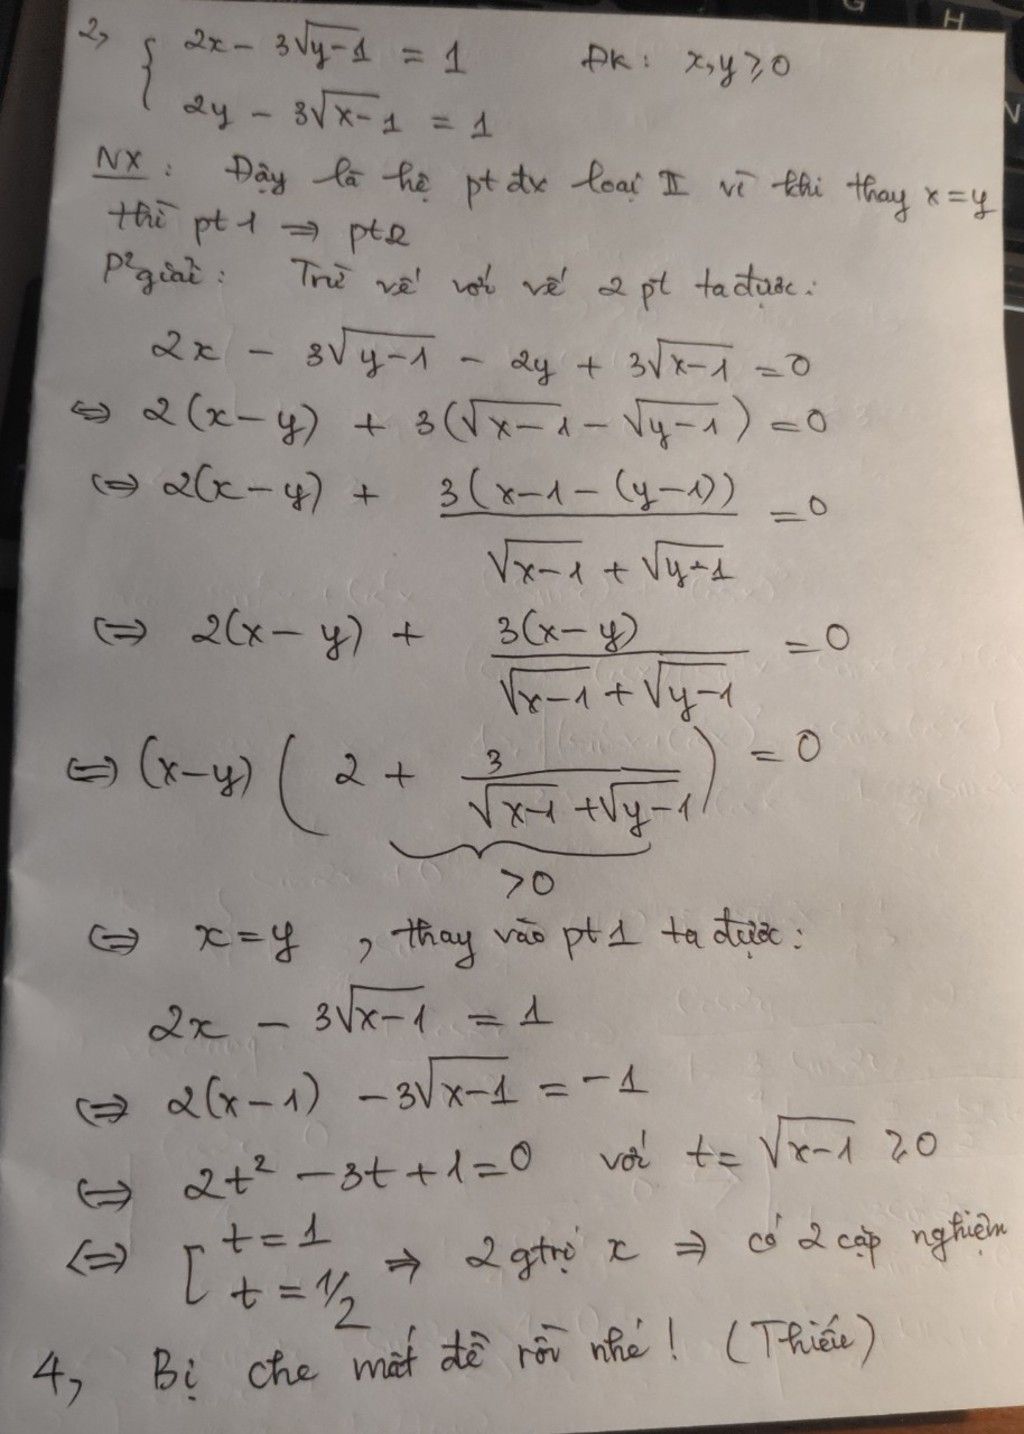 2, { 2x - 3√(y-1) = 1 ĐK: x,y ≥ 0
2y - 3√(x-1) = 1
NX: Đây là hệ pt đx loại II vì khi thay x=y
thì pt 1 ⇒ pt2
P²giải: Trừ vế với vế 2 pt ta được:
2x - 3√(y-1) - 2y + 3√(x-1) = 0
⇔ 2(x-y) + 3(√(x-1) - √(y-1)) = 0
⇔ 2(x-y) + 3(x-1-(y-1)) / (√(x-1) + √(y-1)) = 0
⇔ 2(x-y) + 3(x-y) / (√(x-1) + √(y-1)) = 0
⇔ (x-y) ( 2 + 3 / (√(x-1) + √(y-1)) ) = 0
>0
⇔ x=y , thay vào pt 1 ta được:
2x - 3√(x-1) = 1
⇔ 2(x-1) - 3√(x-1) = -1
⇔ 2t² - 3t + 1 = 0 với t = √(x-1) ≥ 0
⇔ [ t = 1
t = 1/2 ⇒ 2 gtrị x ⇒ có 2 cặp nghiệm
4, Bị che mất đề rồi nhé! (Thiếu)
G
H
N